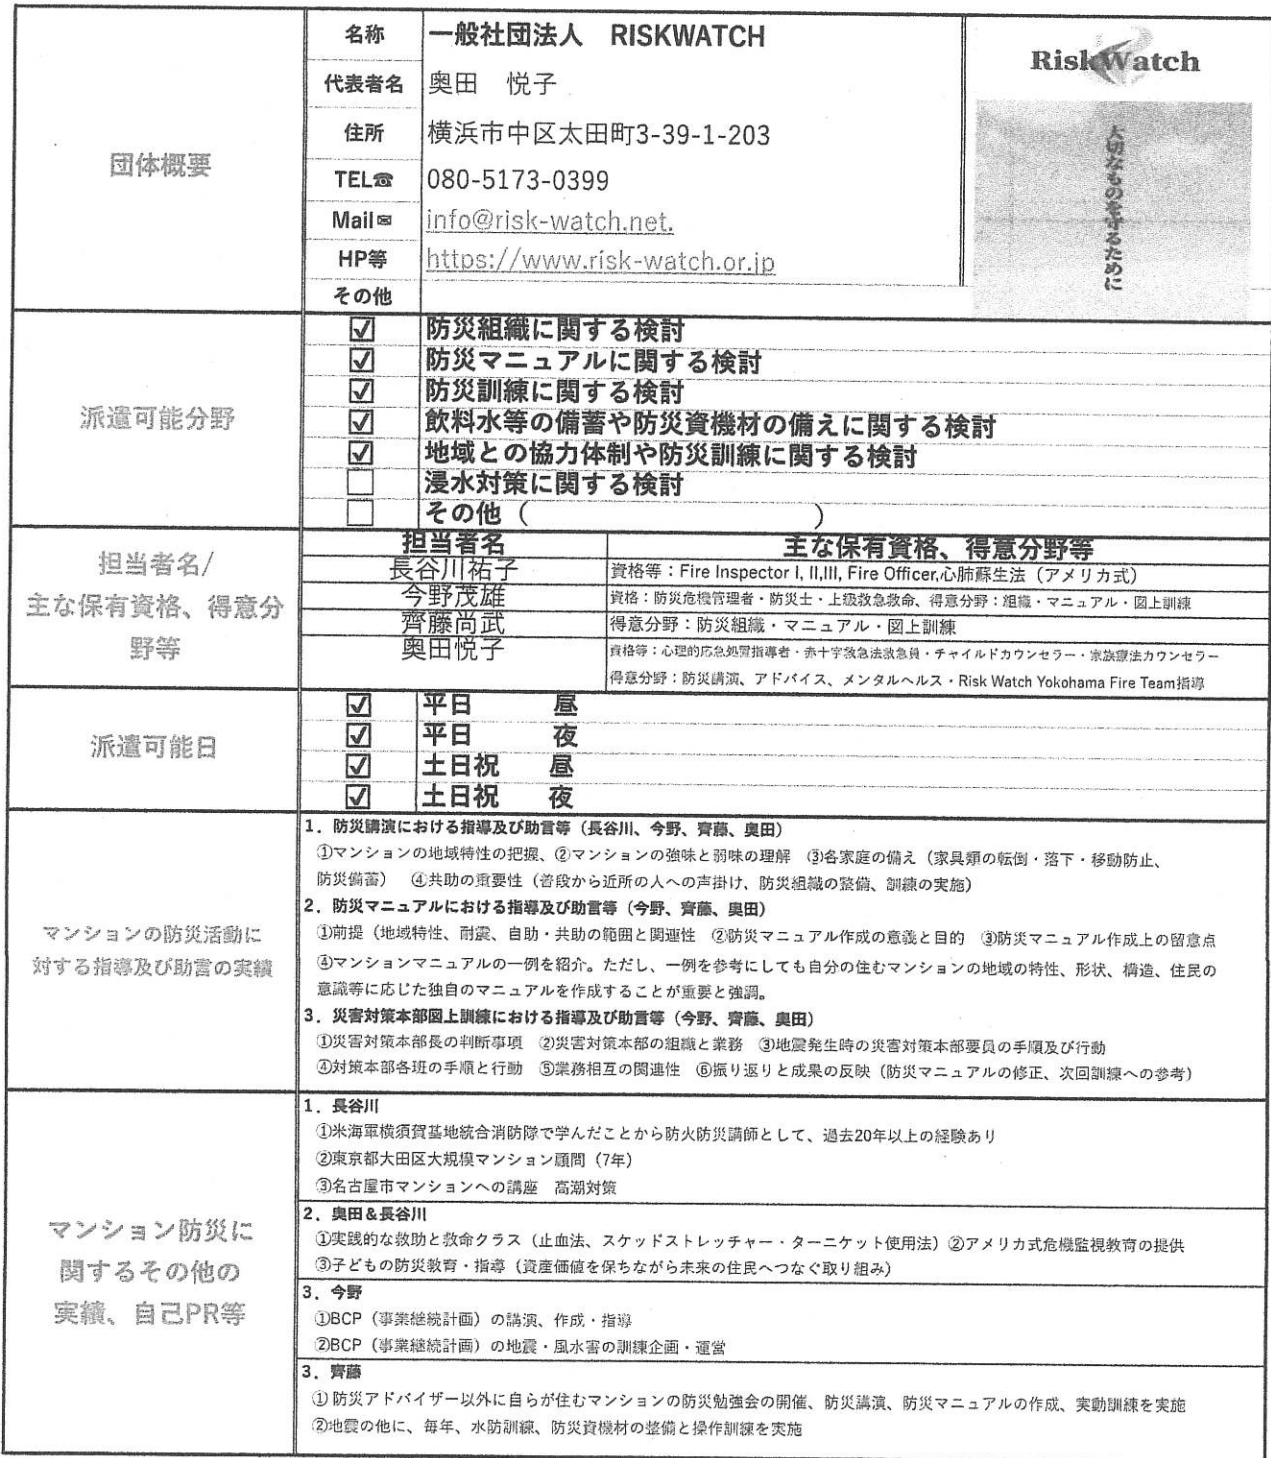 団体概要
名称 一般社団法人 RISKWATCH
代表者名 奥田 悦子
住所 横浜市中区太田町3-39-1-203
TEL☎ 080-5173-0399
Mail✉ info@risk-watch.net.
HP等 https://www.risk-watch.or.jp
その他
RiskWatch
大切なものを守るために
派遣可能分野
☑ 防災組織に関する検討
☑ 防災マニュアルに関する検討
☑ 防災訓練に関する検討
☑ 飲料水等の備蓄や防災資機材の備えに関する検討
☑ 地域との協力体制や防災訓練に関する検討
□ 浸水対策に関する検討
□ その他( )
担当者名/
主な保有資格、得意分
野等
担当者名 主な保有資格、得意分野等
長谷川祐子 資格等:Fire Inspector I, II,III, Fire Officer,心肺蘇生法(アメリカ式)
今野茂雄 資格:防災危機管理者・防災士・上級救急救命、得意分野:組織・マニュアル・図上訓練
齊藤尚武 得意分野:防災組織・マニュアル・図上訓練
奥田悦子 資格等:心理的応急処置指導者・赤十字救急法救急員・チャイルドカウンセラー・家族療法カウンセラー
得意分野:防災講演、アドバイス、メンタルヘルス・Risk Watch Yokohama Fire Team指導
派遣可能日
☑ 平日 昼
☑ 平日 夜
☑ 土日祝 昼
☑ 土日祝 夜
マンションの防災活動に
対する指導及び助言の実績
1.防災講演における指導及び助言等(長谷川、今野、齊藤、奥田)
①マンションの地域特性の把握、②マンションの強味と弱味の理解 ③各家庭の備え(家具類の転倒・落下・移動防止、
防災備蓄) ④共助の重要性(普段から近所の人への声掛け、防災組織の整備、訓練の実施)
2.防災マニュアルにおける指導及び助言等(今野、齊藤、奥田)
①前提(地域特性、耐震、自助・共助の範囲と関連性 ②防災マニュアル作成の意義と目的 ③防災マニュアル作成上の留意点
④マンションマニュアルの一例を紹介。ただし、一例を参考にしても自分の住むマンションの地域の特性、形状、構造、住民の
意識等に応じた独自のマニュアルを作成することが重要と強調。
3.災害対策本部図上訓練における指導及び助言等(今野、齊藤、奥田)
①災害対策本部長の判断事項 ②災害対策本部の組織と業務 ③地震発生時の災害対策本部要員の手順及び行動
④対策本部各班の手順と行動 ⑤業務相互の関連性 ⑥振り返りと成果の反映(防災マニュアルの修正、次回訓練への参考)
マンション防災に
関するその他の
実績、自己PR等
1.長谷川
①米海軍横須賀基地統合消防隊で学んだことから防火防災講師として、過去20年以上の経験あり
②東京都大田区大規模マンション顧問(7年)
③名古屋市マンションへの講座 高潮対策
2.奥田&長谷川
①実践的な救助と救命クラス(止血法、スケッドストレッチャー・ターニケット使用法)②アメリカ式危機監視教育の提供
③子どもの防災教育・指導(資産価値を保ちながら未来の住民へつなぐ取り組み)
3.今野
①BCP(事業継続計画)の講演、作成・指導
②BCP(事業継続計画)の地震・風水害の訓練企画・運営
3.齊藤
①防災アドバイザー以外に自らが住むマンションの防災勉強会の開催、防災講演、防災マニュアルの作成、実動訓練を実施
②地震の他に、毎年、水防訓練、防災資機材の整備と操作訓練を実施